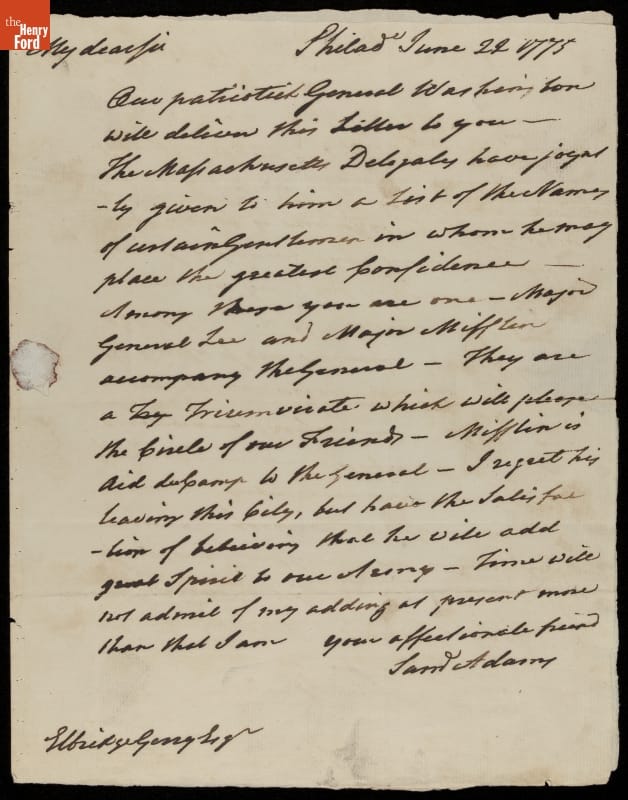 the
Henry
Ford
My dear sir Philadᵃ June 22 1775
Our patriotick General Washington
will deliver this Letter to you —
The Massachusetts Delegates have joynt
-ly given to him a List of the Names
of certain Gentlemen in whom he may
place the greatest Confidence —
Among these you are one — Major
General Lee and Major Mifflin
accompany the General — They are
a Triumvirate which will please
the Circle of our Friends — Mifflin is
Aid de Camp to the General — I regret his
leaving this City, but have the Satisfac
-tion of believing that he will add
great Spirit to our Army — Time will
not admit of my adding at present more
than that I am your affectionate friend
Samˡ Adams
Elbridge Gerry Esqʳ